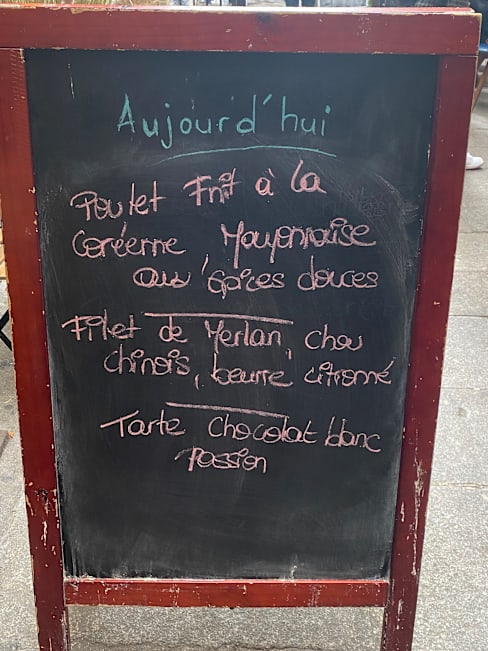 Aujourd'hui
Poulet Frit à la
Coréenne, Mayonnaise
aux épices douces
Filet de Merlan, chou
chinois, beurre citronné
Tarte chocolat blanc
passion